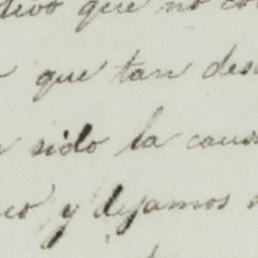 que no
que tan des
sido la caus
y dejamos